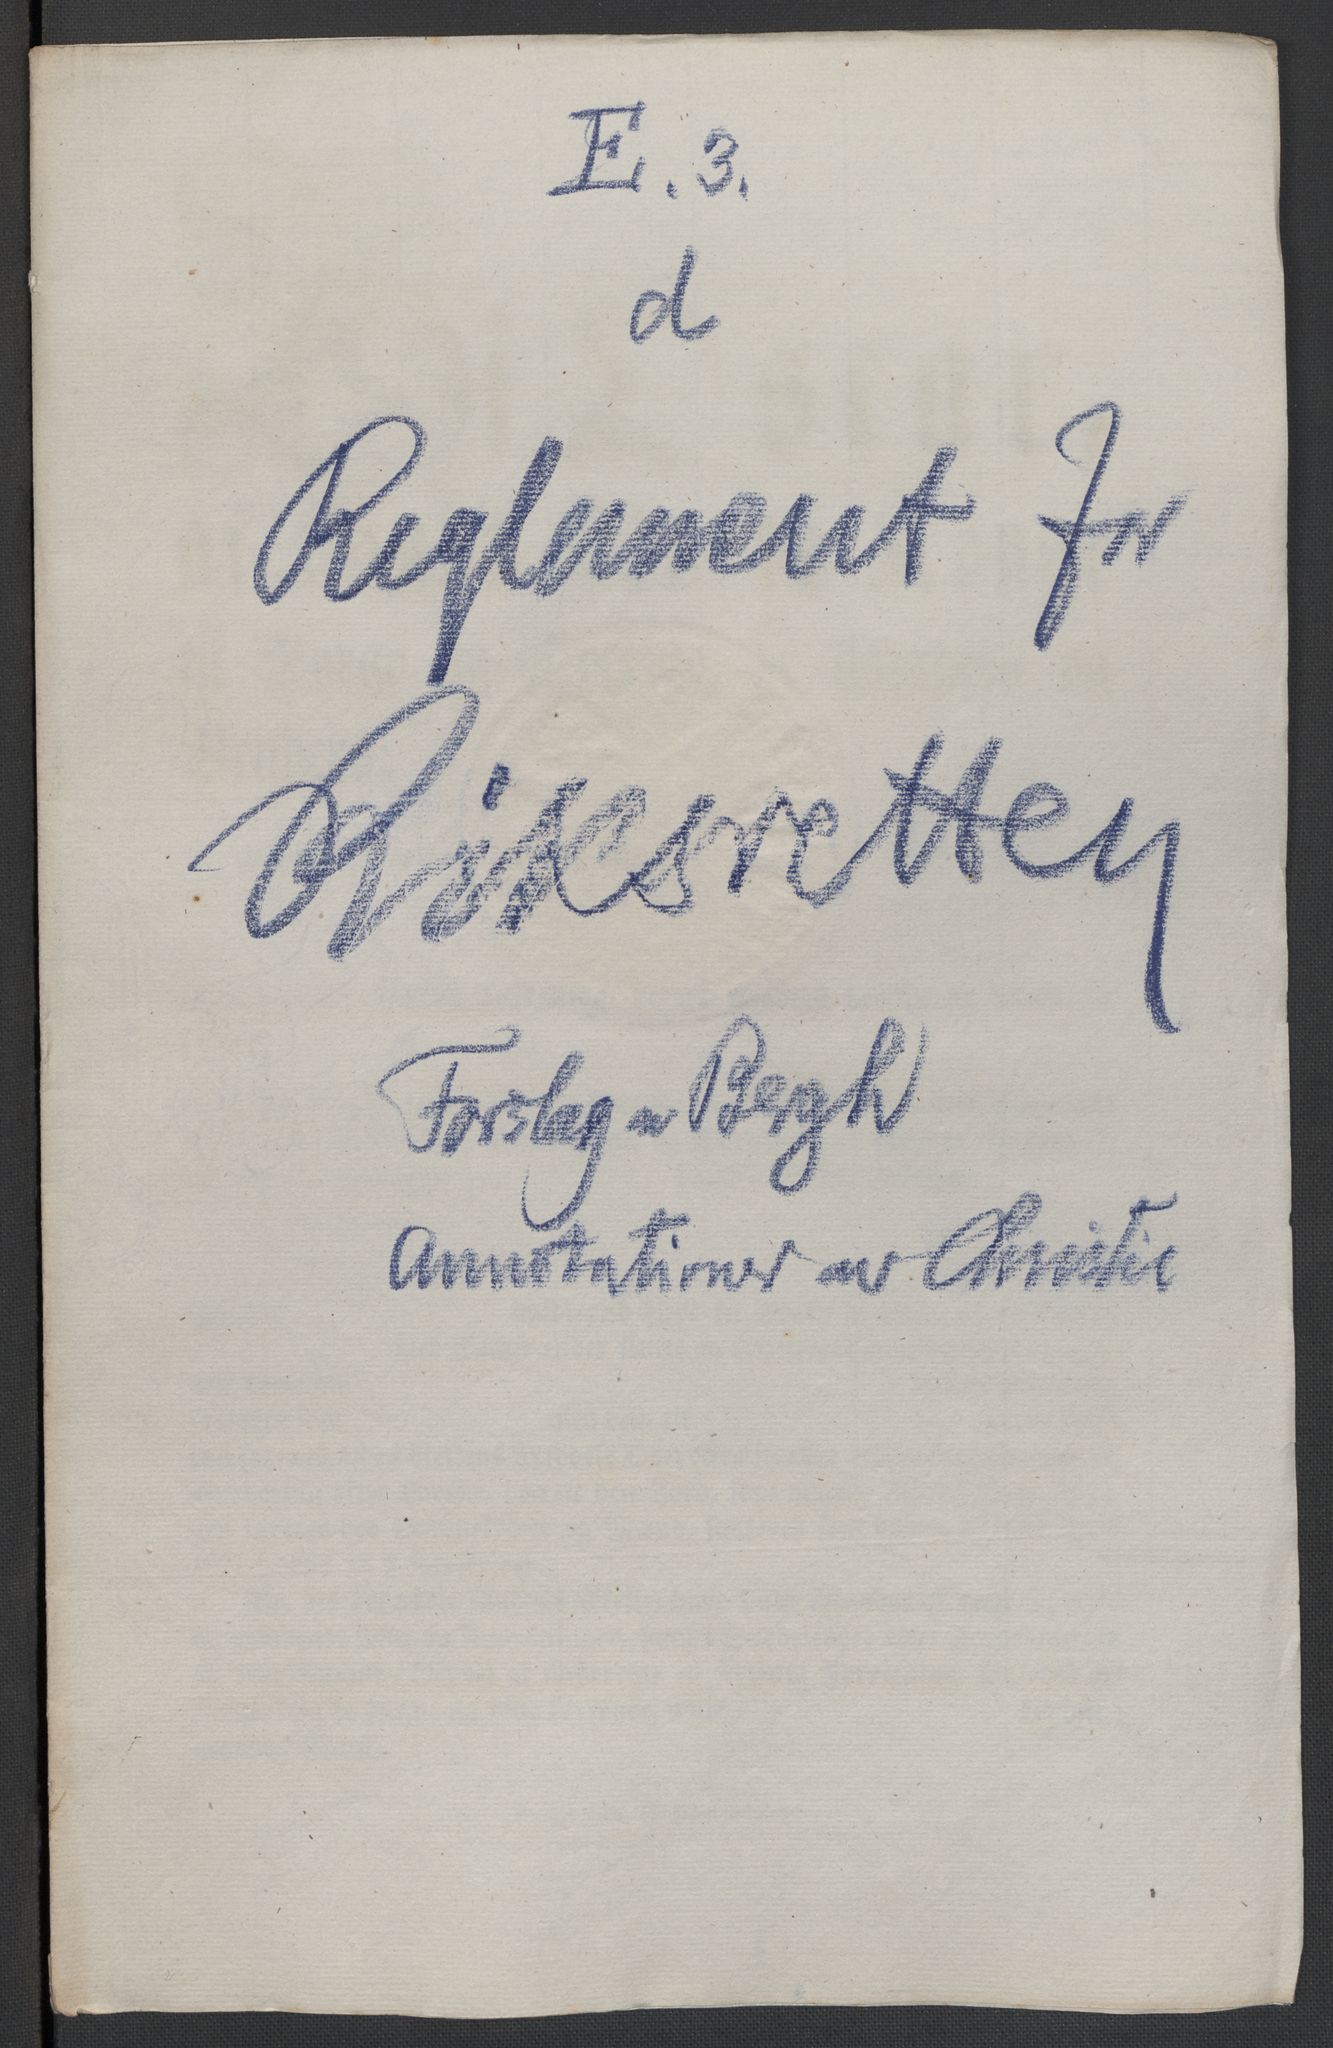 E. 3.
d
Reglement for
Riksretten
Forslag av Bergh
Annotationer av Christie